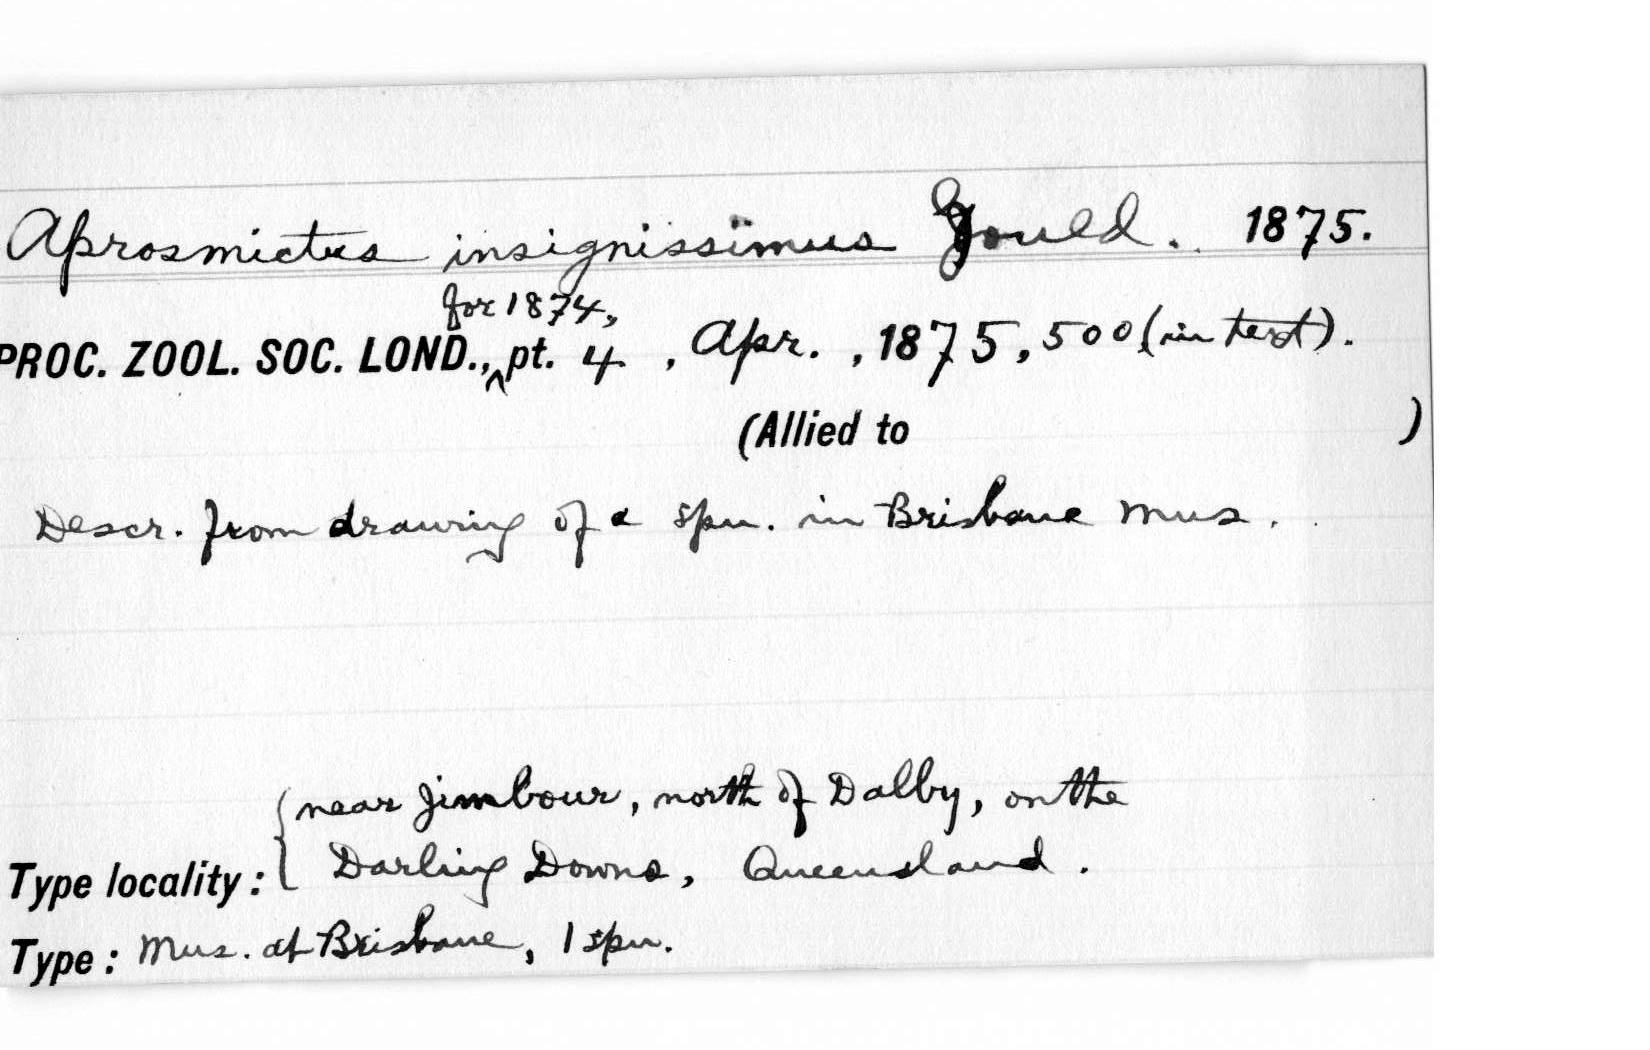 Aprosmictus insignissimus Gould. 1875.
for 1874,
PROC. ZOOL. SOC. LOND., ^ pt. 4 , Apr. , 1875, 500 (in text).
(Allied to )
Descr. from drawing of a spn. in Brisbane Mus.
near Jimbour, north of Dalby, on the
Type locality: { Darling Downs, Queensland.
Type: Mus. at Brisbane, 1 spn.